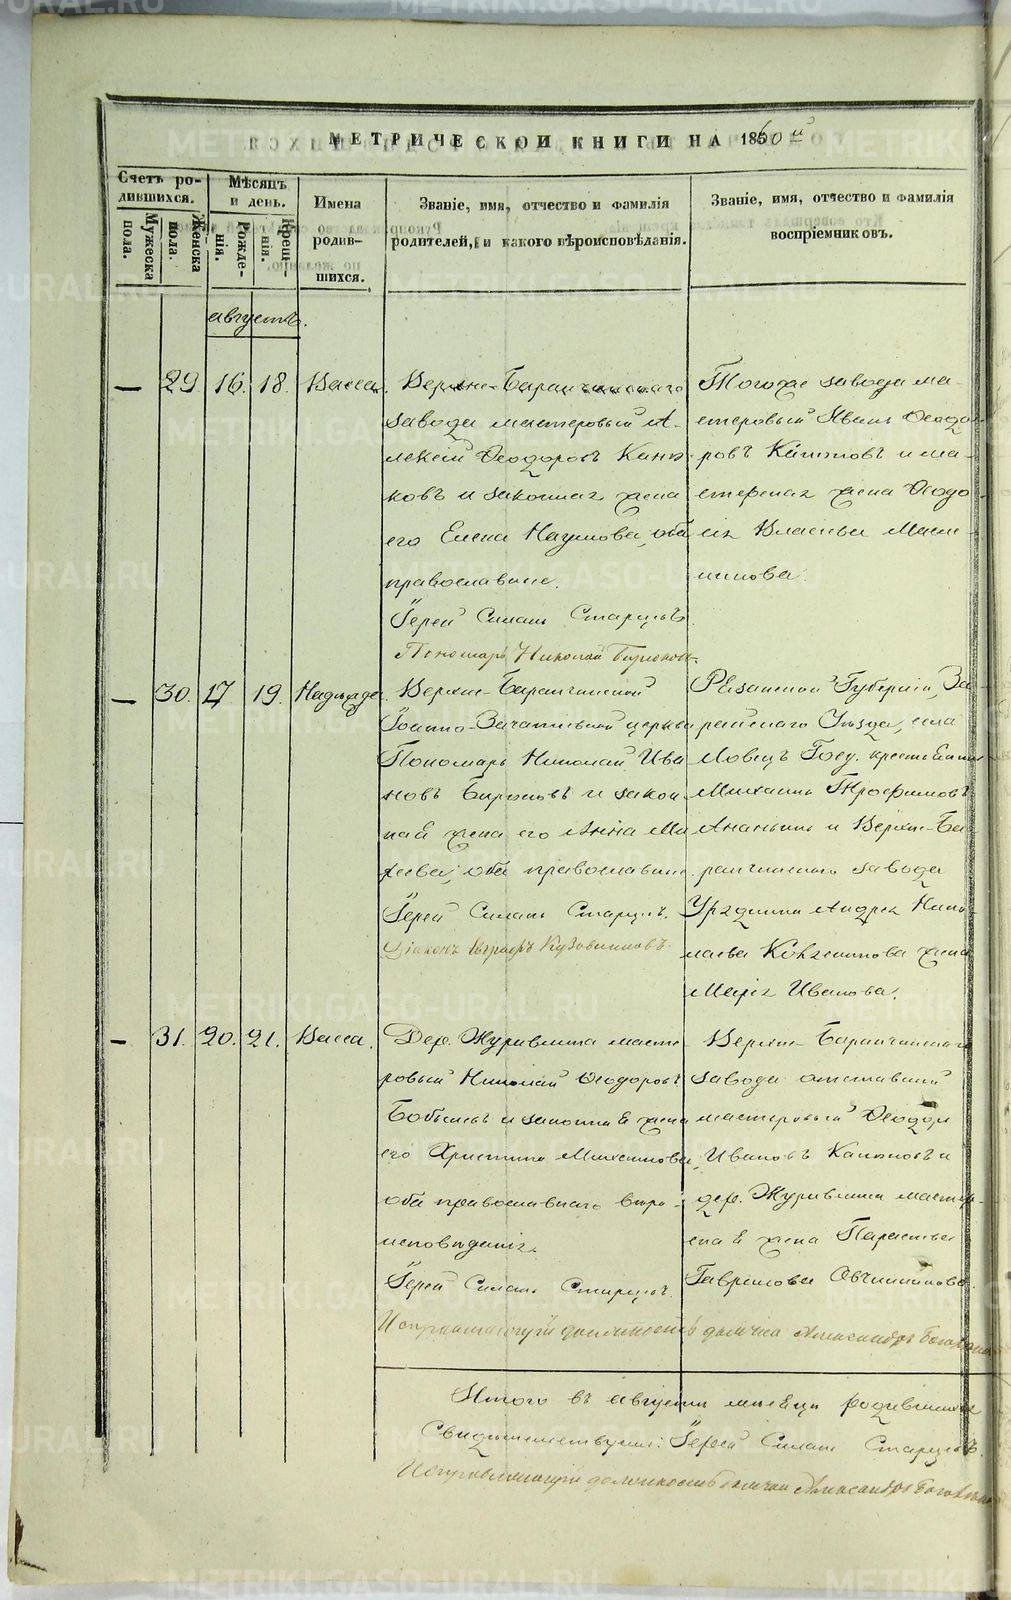 МЕТРИЧЕСКОЙ КНИГИ НА 1860й
Счетъ ро-
дившихся.
Мужеска
пола.
Женска
пола.
Мѣсяцъ
и день.
Рожде-
нія.
Крещ-
нія.
Имена
родив-
шихся.
Званіе, имя, отчество и фамилія
родителей, и какого вѣроисповѣданія.
Званіе, имя, отчество и фамилія
воспріемниковъ.
Августъ.
— 29. 16. 18. Васса.
Верхне-Баранчинскаго
завода мастеровый А-
лексій Ѳеодоровъ
и законная жена
его Елена Наумова, оба
православные.
Іерей Симеонъ Старцевъ
Пономарь Николай Бирюковъ
Тогоже завода ма-
стеровый Иванъ Ѳеодо-
ровъ и ма-
стерская жена Ѳеодо-
Власьева
— 30. 17 19. Надежда.
Верхне-Баранчинской
Іоанно-Зачатіевской церкви
Пономарь Николай Ива
новъ Бирюковъ и закон
ная жена его Анна Ма
оба православные.
Іерей Симеонъ Старцевъ.
Діаконъ Евграфъ
Рязанской Губерніи, За-
райскаго Уѣзда, села
Ловецъ Госу. крестьянинъ
Михаилъ Трофимовъ
Ананьинъ и Верхне-Ба
ранчинскаго завода
Урядника Андрея Нико-
лаева жена
Марія Иванова.
— 31. 20. 21. Васса.
Дер. Журавлика масте-
ровый Николай Ѳеодоровъ
и законная жена
его Христина
оба православнаго вѣро-
исповѣданія.
Іерей Симеонъ Старцевъ.
Верхне-Баранчинскаго
завода отставный
мастеровый Ѳеодоръ
Ивановъ и
дер. Журавлика мастер-
ская жена Параскева
Гаврилова Овчинникова.
Исправляющій должность дьячка Александръ
Итого въ августѣ мѣсяцѣ родившихся
Свидѣтельствуемъ: Іерей Симеонъ Старцевъ.
Исправляющій должность дьячка Александръ